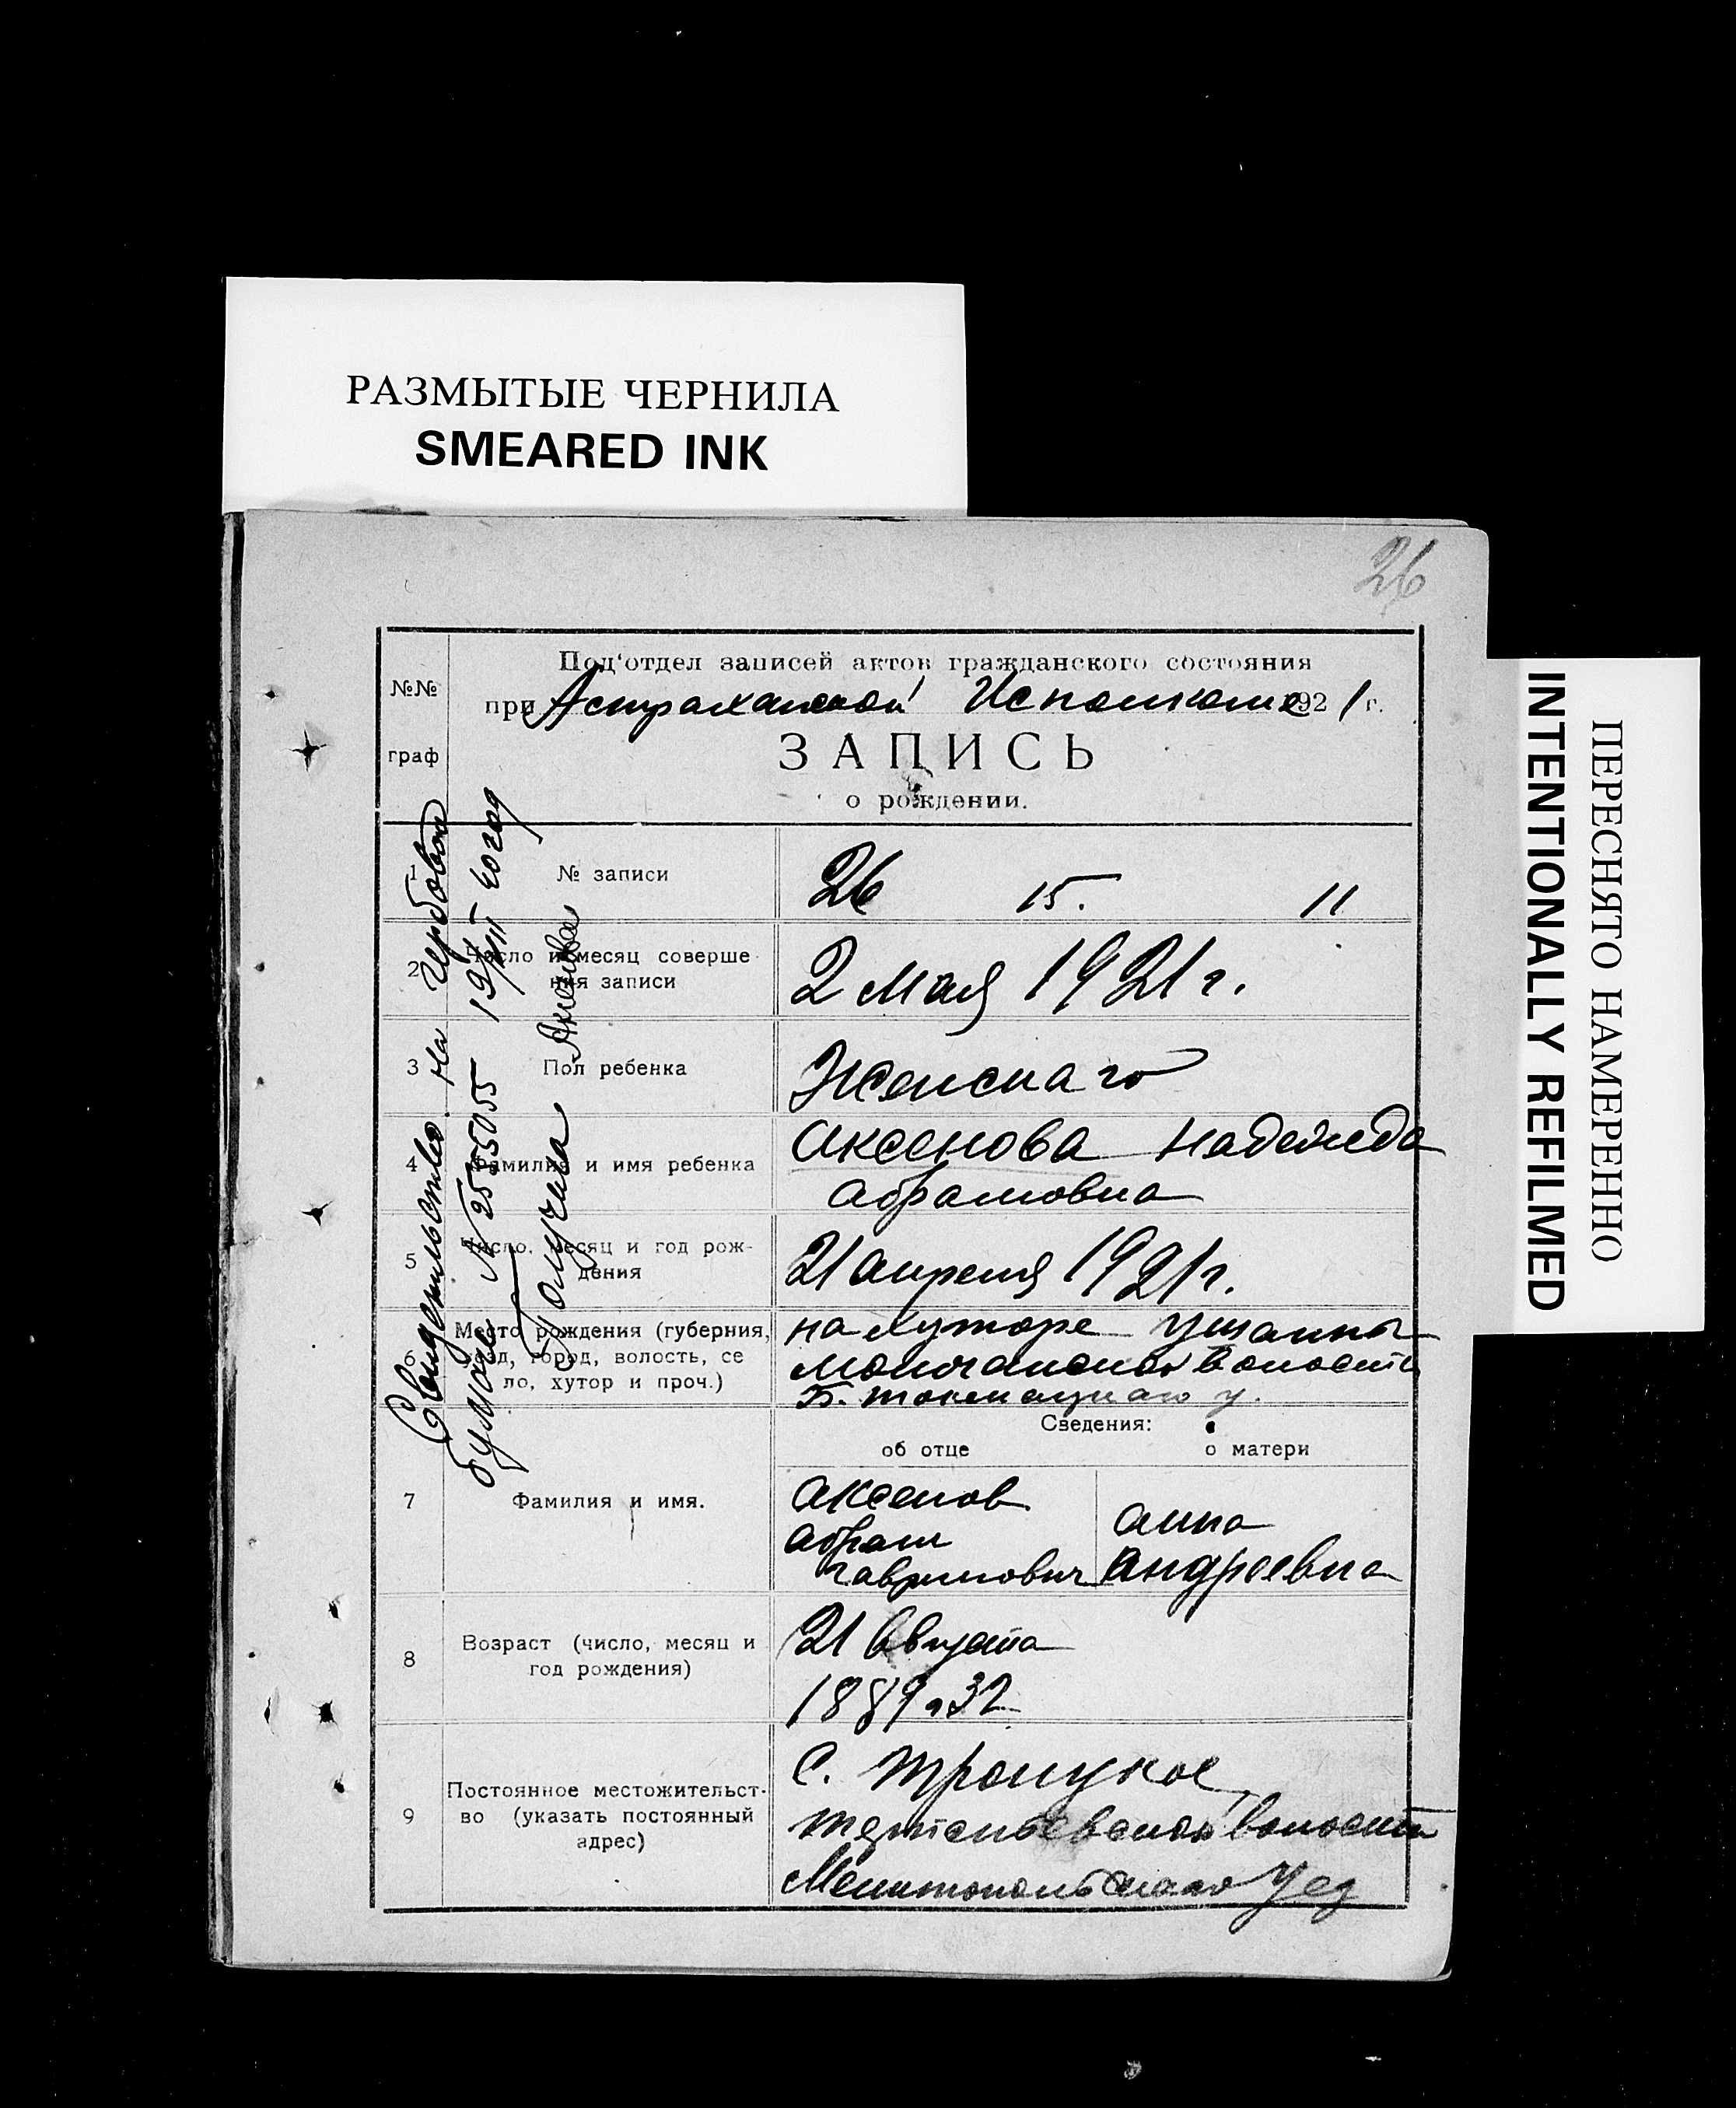 РАЗМЫТЫЕ ЧЕРНИЛА
SMEARED INK
26
ПЕРЕСНЯТО НАМЕРЕННО
INTENTIONALLY REFILMED
№№
граф
Под'отдел записей актов гражданского состояния
при Астраханской Исполкоме 1921 г.
ЗАПИСЬ
о рождении.
1 № записи
26 15. 11
2 Число и месяц соверше
ния записи
2 мая 1921 г.
3 Пол ребенка
Женскаго
4 Фамилия и имя ребенка
Аксенова Надежда
Абрамовна
5 Число, месяц и год рож-
дения
21 апреля 1921 г.
6 Место рождения (губерния,
уезд, город, волость, се
ло, хутор и проч.)
на хуторе
волости
Б. Токмацкаго у.
Сведения:
об отце
о матери
7 Фамилия и имя.
Аксенов
Абрам
Гаврилович
Анна
Андреевна
8 Возраст (число, месяц и
год рождения)
21 Августа
1889 32
9 Постоянное местожительст-
во (указать постоянный
адрес)
С. Троицкое
волости
Мелитопольскаго Уез
Свидетельство на гербовой
бумаге № 2555055 19/XII 40 год
Получила